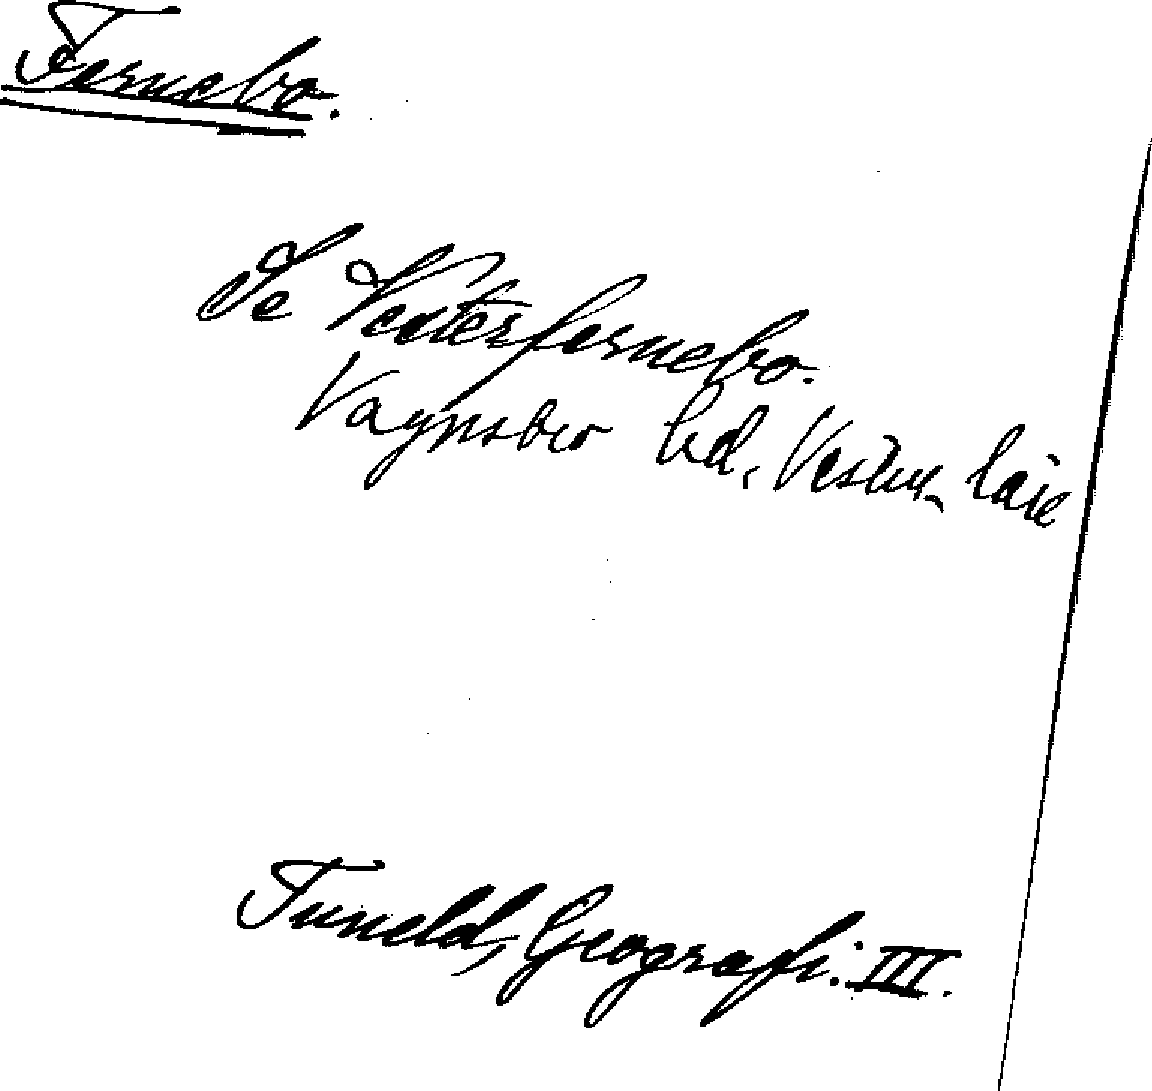 Fernebo.
Se Vesterfernebo.
Vagnsbro hd, Vestm. län
Tuneld, Geografi. III.